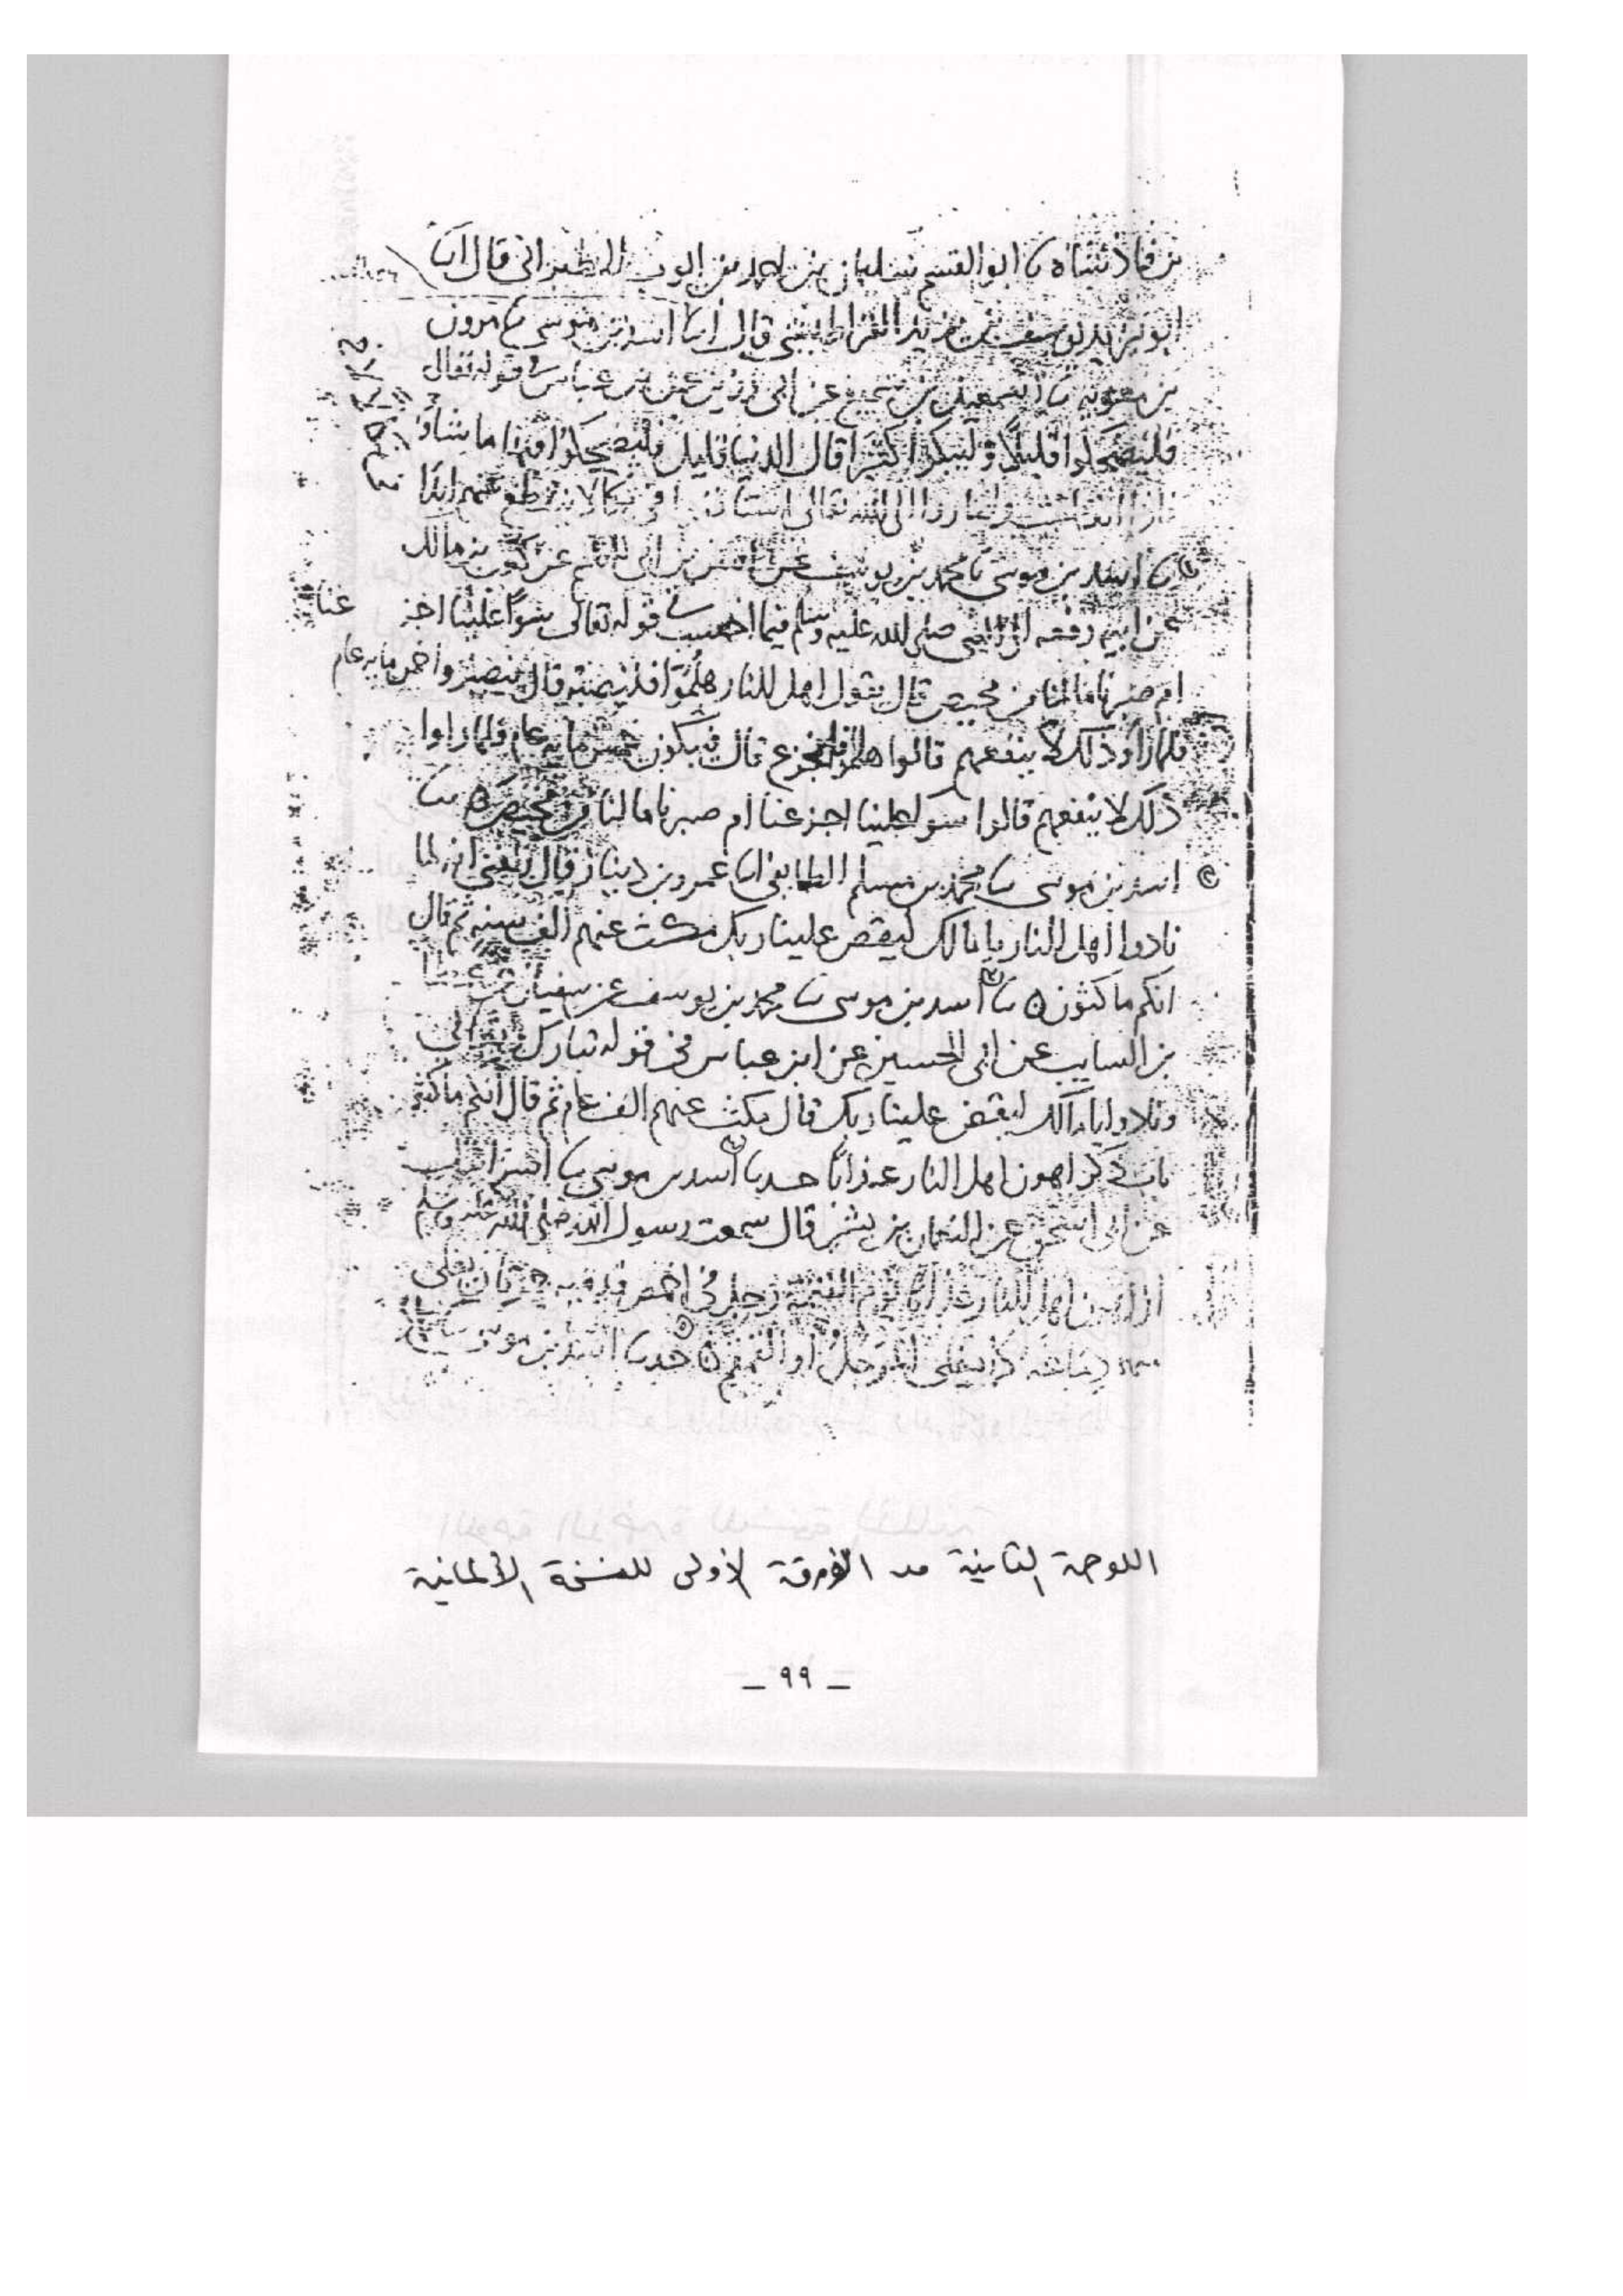 بن فاذشاه نا ابو القسم سليمان بن احمد بن ايوب الطبراني قال انا
ابو يزيد يوسف بن يزيد القراطيسي قال انا اسد بن موسى نا مرون
بن معويه نا اسمعيل بن سميع عن ابي رزين عن بن عباس في قوله تعالى
فليضحكوا قليلا وليبكوا كثيرا قال الدنيا قليل فليضحكوا فيها ما شاوا
الى الله تعالى ابدا
نا اسد بن موسى نا محمد بن يوسف عن بن مالك
عن ابيه رفعه الى النبي صلى الله عليه وسلم فيما احسب في قوله تعالى سوا علينا اجز عنا
ام صبرنا ما لنا من محيص قال يقول اهل النار هلموا فلنصبر قال فيصبروا خمس مايه عام
فلما راو ذلك لا ينفعهم قالوا هلموا فلنجزع قال فيبكون خمس مايه عام فلما راوا
ذلك لا ينفعهم قالوا سوا علينا اجزعنا ام صبرنا ما لنا من محيص نا
اسد بن موسى نا محمد بن مسلم الطايفي انا عمرو بن دينار قال بلغني انه لما
نادوا اهل النار يا مالك ليقض علينا ربك مكث عنهم الف سنه ثم قال
انكم ماكثون نا اسد بن موسى نا محمد بن يوسف عن سفيان عن عطا
بن السايب عن ابي الحسين عن ابن عباس في قوله تبارك وتعالى
ونادوا يا مالك ليقض علينا ربك قال مكث عنهم الف عام ثم قال انكم ماكثون
باب ذكر اهون اهل النار عذابا حدنا اسد بن موسى نا اسرائيل
عن ابي اسحق عن النعمان بن بشير قال سمعت رسول الله صلى الله عليه وسلم
ان اهون اهل النار عذابا يوم القيمة رجل في اخمص قدميه جمرتان يغلي
دماغه كما يغلي المرجل او القمقم حدنا اسد بن موسى
اللوحة الثانية من الورقة الأولى للنسخة الألمانية
_ ٩٩ _